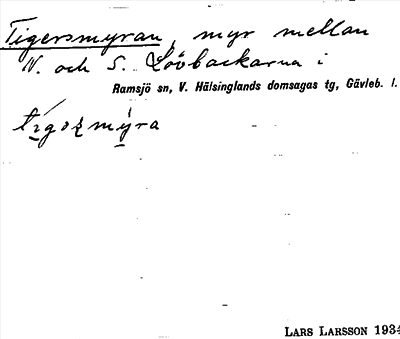 Tigersmyran, myr mellan
N. och S. Lövbackarna i
Ramsjö sn, V. Hälsinglands domsagas tg, Gävleb. l.
LARS LARSSON 1934